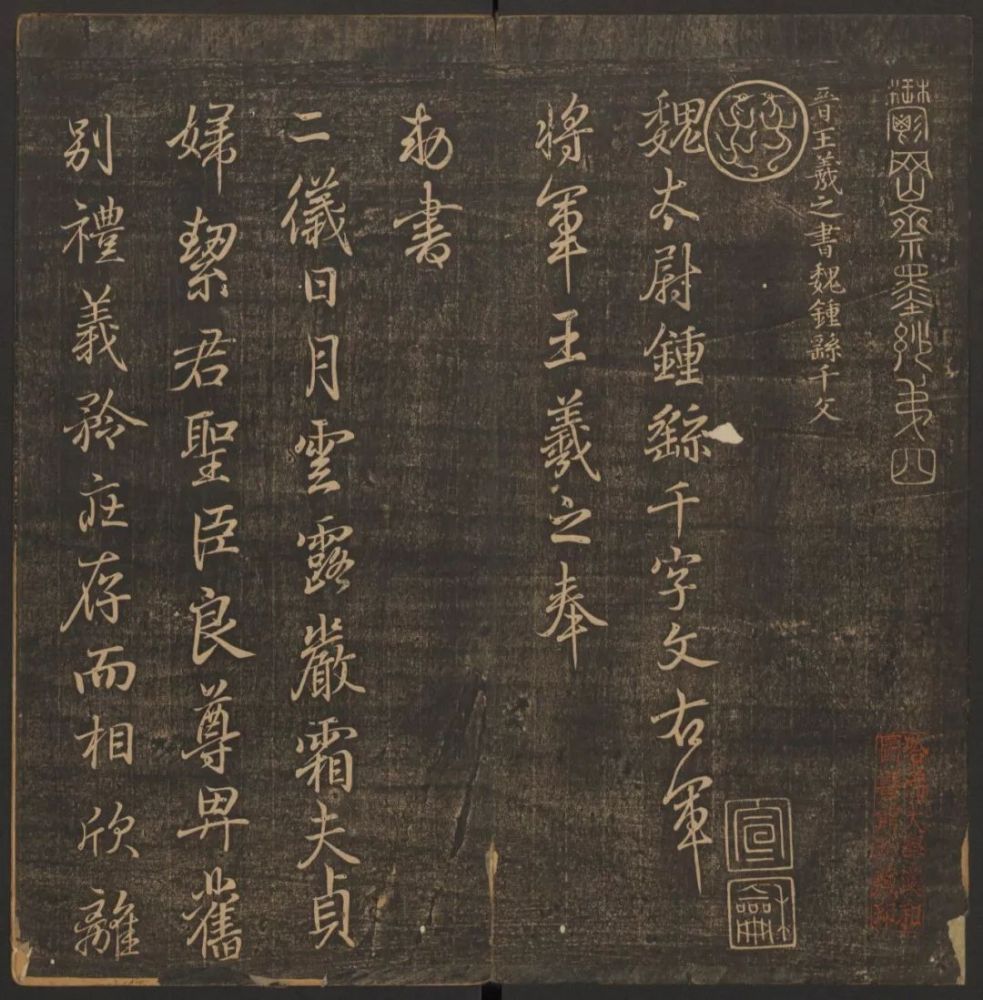 鬱岡齋墨妙弟四
晉王羲之書魏鍾繇千文
魏太尉鍾繇千字文右軍
將軍王羲之奉
勅書
二儀日月雲露嚴霜夫貞
婦絜君聖臣良尊卑舊
別禮義矜莊存而相欣離
宣
和